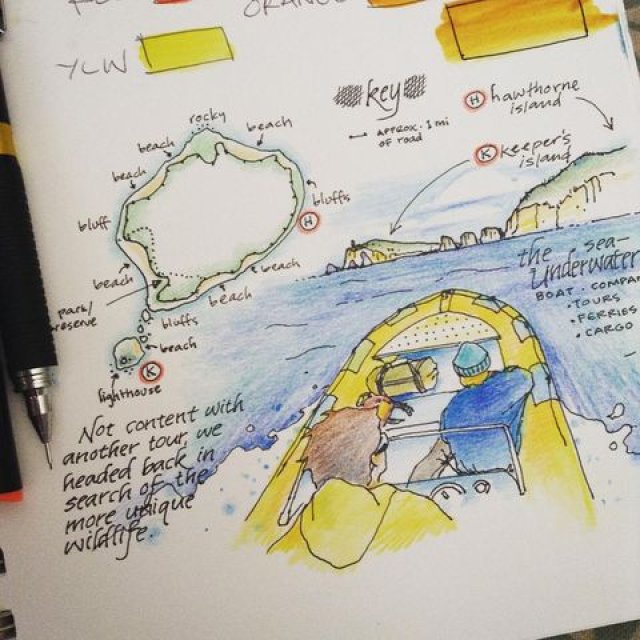 YLW
key
APPROX. 1 mi
of road
H hawthorne
island
K keeper's
island
rocky
beach
beach
beach
bluffs
bluff
H
beach
beach
beach
park/
bluffs
beach
K
lighthouse
the sea-
Underwater
BOAT. COMPA
• TOURS
• FERRIES
• CARGO
Not content with
another tour we
headed back in
search of the
more unique
wildlife.